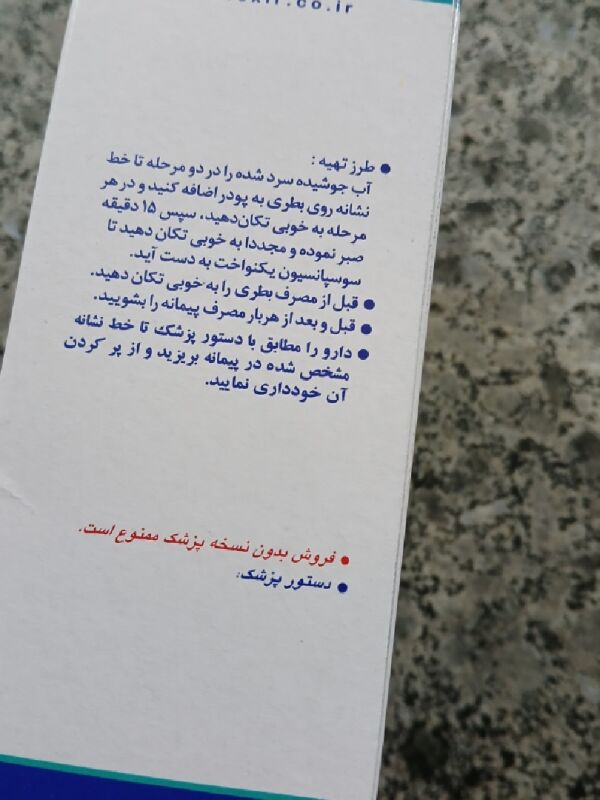 .co.ir
● طرز تهیه :
آب جوشیده سرد شده را در دو مرحله تا خط
نشانه روی بطری به پودر اضافه کنید و در هر
مرحله به خوبی تکان‌دهید، سپس ۱۵ دقیقه
صبر نموده و مجددا به خوبی تکان دهید تا
سوسپانسیون یکنواخت به دست آید.
● قبل از مصرف بطری را به خوبی تکان دهید.
● قبل و بعد از هربار مصرف پیمانه را بشویید.
● دارو را مطابق با دستور پزشک تا خط نشانه
مشخص شده در پیمانه بریزید و از پر کردن
آن خودداری نمایید.
● فروش بدون نسخه پزشک ممنوع است.
● دستور پزشک: